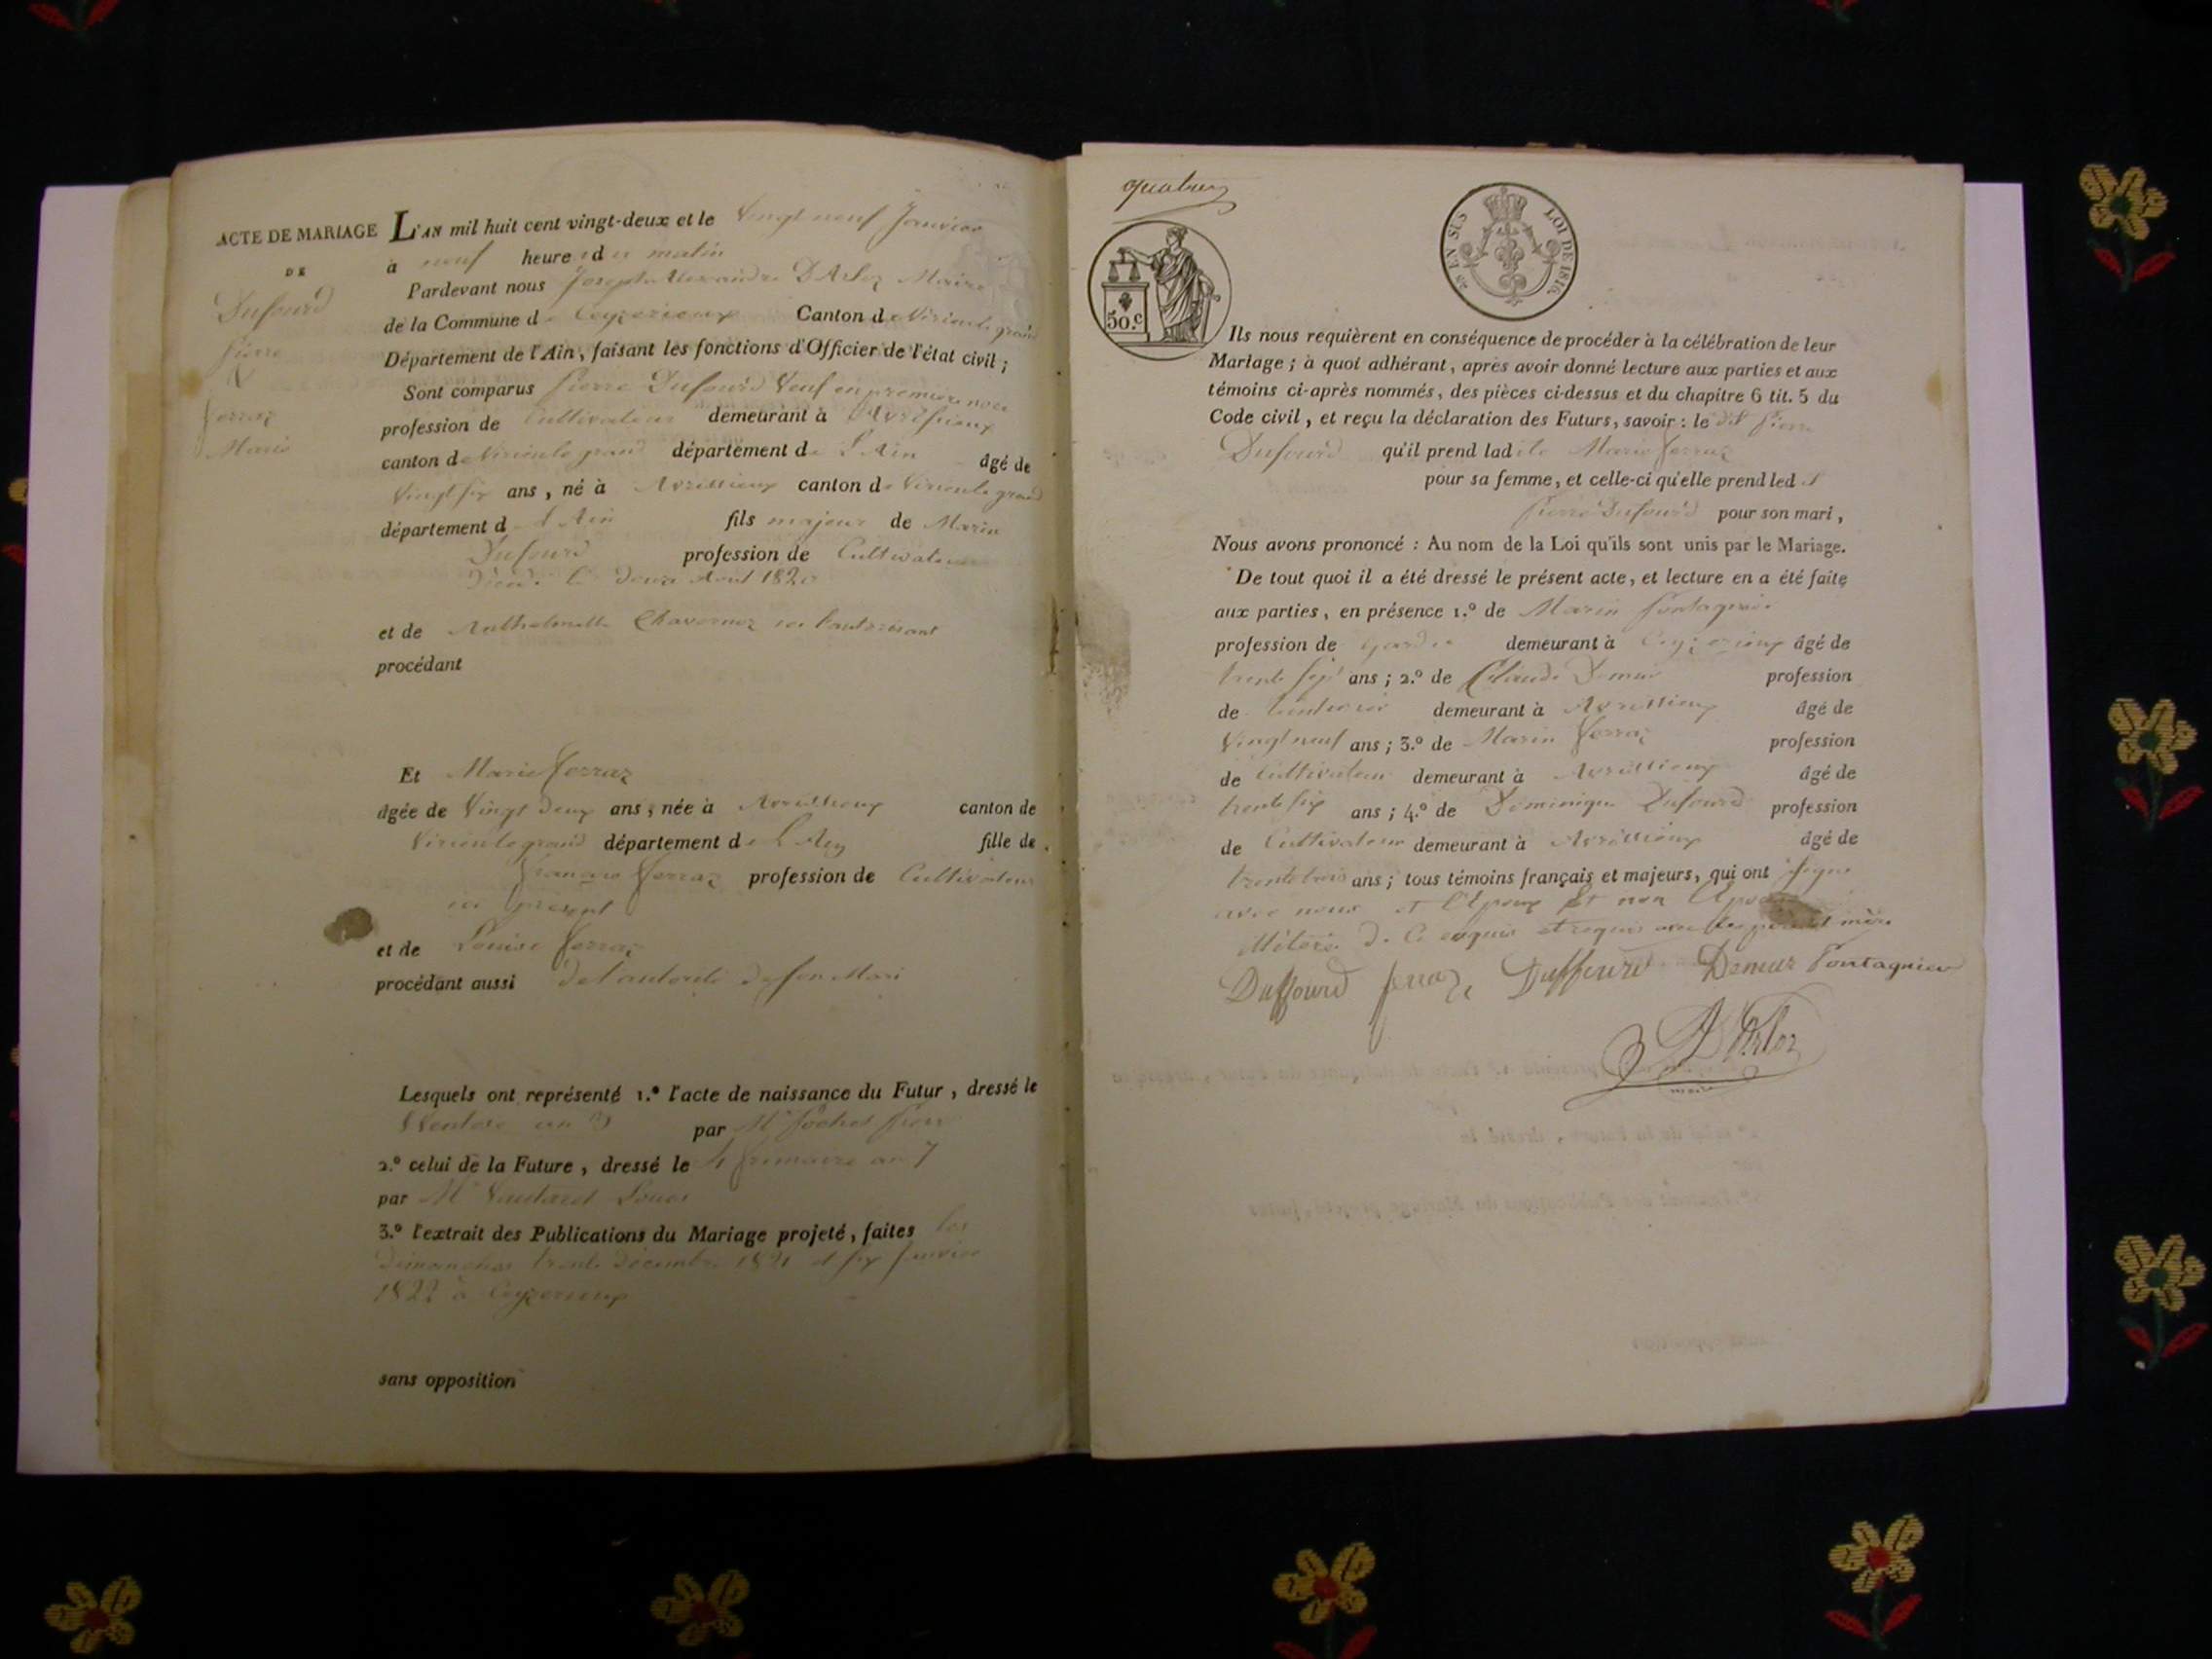 ACTE DE MARIAGE
DE
Dufourd
Pierre
&
Ferraz
Marie
L'AN mil huit cent vingt-deux et le Vingt neuf Janvier
à neuf heures du matin
Pardevant nous Joseph Alexandre D'Arloz Maire
de la Commune de Ceyzerieux Canton de Virieu le grand
Département de l'Ain, faisant les fonctions d'Officier de l'état civil;
Sont comparus Pierre Dufourd Veuf en premiere noce
profession de Cultivateur demeurant à Avrissieux
canton de Virieu le grand département de L'Ain âgé de
Vingt six ans, né à Avrissieux canton de Virieu le grand
département de l'Ain fils majeur de Marin
Dufourd profession de Cultivateur
août 182
et de Chavornoz ici l'autorisant
procédant
Et Marie Ferraz
âgée de Vingt deux ans, née à Avrissieux canton de
Virieu le grand département de L'Ain fille de
François Ferraz profession de Cultivateur
ici présent
et de Louise Ferraz
procédant aussi de l'autorité de son Mari
Lesquels ont représenté 1.° l'acte de naissance du Futur, dressé le
Ventose an 3 par Mr Pochet Pierre
2.° celui de la Future, dressé le frimaire an 7
par Mr Louis
3.° l'extrait des Publications du Mariage projeté, faites les
dimanches trente décembre 1821 et six Janvier
1822 à Ceyzerieux
sans opposition
quatre
50.c
EN SUS
LOI DE 1816.
Ils nous requièrent en conséquence de procéder à la célébration de leur
Mariage; à quoi adhérant, après avoir donné lecture aux parties et aux
témoins ci-après nommés, des pièces ci-dessus et du chapitre 6 tit. 5 du
Code civil, et reçu la déclaration des Futurs, savoir: le dit Pierre
Dufourd qu'il prend ladite Marie Ferraz
pour sa femme, et celle-ci qu'elle prend led t
Pierre Dufourd pour son mari,
Nous avons prononcé: Au nom de la Loi qu'ils sont unis par le Mariage.
De tout quoi il a été dressé le présent acte, et lecture en a été faite
aux parties, en présence 1.° de Marin Fontagnier
profession de garde demeurant à Ceyzerieux âgé de
trente sept ans; 2.° de Claude Demur profession
de demeurant à Avrissieux âgé de
Vingt neuf ans; 3.° de Marin Ferraz profession
de Cultivateur demeurant à Avrissieux âgé de
trente six ans; 4.° de Dominique Dufourd profession
de Cultivateur demeurant à Avrissieux âgé de
trente trois ans; tous témoins français et majeurs, qui ont signé
avec nous et l'Epoux et non l'Epouse
illiteré de ce enquis et requis avec les père et mère
Duffourd ferraz Duffourd Demur Fontagnier
D'Arloz
maire